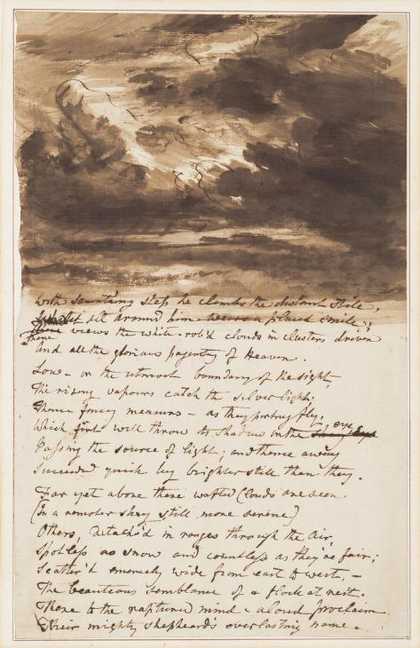 With sauntering steps he climbs the distant stile,
Whilst all around him wears a placid smile;
There views the white-rob'd clouds in clusters driven
And all the glorious pagentry of Heaven.
Low - on the utmost boundary of the sight,
The rising vapours catch the silver light;
Thence fancy measures - as they parting fly,
Which first will throw its shadow on the eye
Passing the source of light; and thence away
Succeeded quick by brighter still than they.
Far yet above these wafted Clouds are seen
(In a remoter sky still more serene)
Others, detach'd in ranges through the Air,
Spotless as snow and countless as they're fair;
Scatter'd immensely wide from east to west. -
The beauteous semblance of a flock at rest.
These to the raptured mind - aloud proclaim
Their mighty shepherds everlasting name -